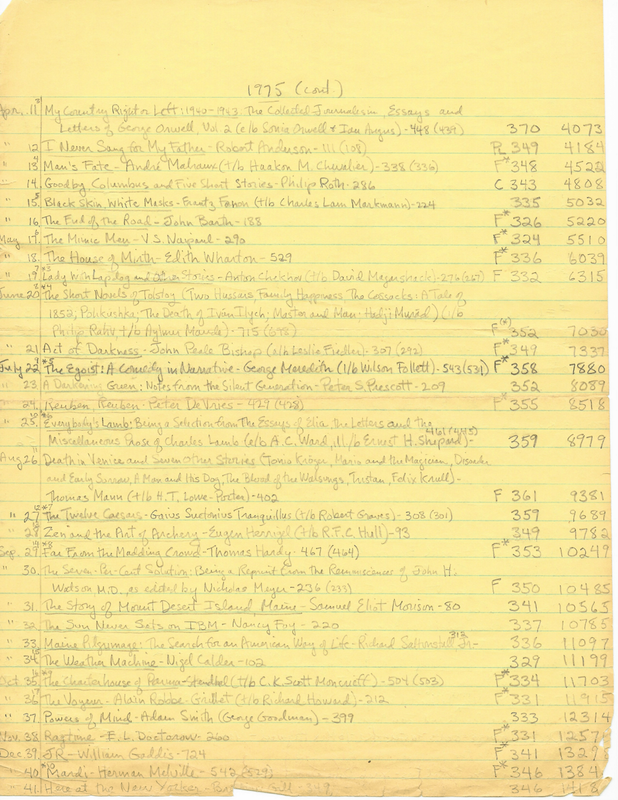 1975 (cont.)
Apr. 11 My Country Right or Left: 1940-1943 The Collected Journalism, Essays and
Letters of George Orwell, Vol. 2 (e/b Sonia Orwell & Ian Angus) - 448 (439) 370 4073
" 12 I Never Sang for My Father - Robert Anderson - 111 (108) PL 349 4184
" 13 Man's Fate - André Malraux (t/b Haakon M. Chevalier) - 338 (336) F* 348 4522
" 14. Goodby, Columbus and Five Short Stories - Philip Roth - 286 C 343 4808
" 15. Black Skin, White Masks - Frantz Fanon (t/b Charles Lam Markmann) - 224 335 5032
" 16. The End of the Road - John Barth - 188 F* 326 5220
May 17. The Mimic Men - V.S. Naipaul - 290 F* 324 5510
" 18. The House of Mirth - Edith Wharton - 529 F* 336 6039
" 19. Lady With Lapdog and Other Stories - Anton Chekhov (t/b David Magarshack) - 276 (267) F 332 6315
June 20. The Short Novels of Tolstoy (Two Hussars, Family Happiness, The Cossacks: A Tale of
1852, Polikushka, The Death of Ivan Ilych, Master and Man: Hadji Murád) (i/b
Philip Rahv, t/b Aylmer Maude) - 715 (698) F(*) 352 7030
" 21. Act of Darkness - John Peale Bishop (e/b Leslie Fiedler) - 307 (292) F* 349 7337
July 22 The Egoist: A Comedy in Narrative - George Meredith (i/b Wilson Follett) - 543 (531) F* 358 7880
" 23. A Darkening Green: Notes from the Silent Generation - Peter S. Prescott - 209 352 8089
" 24. Reuben, Reuben - Peter De Vries - 429 (428) F* 355 8518
" 25. Everybody's Lamb: Being a Selection From The Essays of Elia, the Letters and the
Miscellaneous Prose of Charles Lamb (e/b A.C. Ward, ill/b Ernest H. Shepard) - 461 359 8979
Aug 26. Death in Venice and Seven Other Stories (Tonio Kröger, Mario and the Magician, Disorder
and Early Sorrow, A Man and His Dog, The Blood of the Walsungs, Tristan, Felix Krull) -
Thomas Mann (t/b H.T. Lowe-Porter) - 402 F 361 9381
" 27. The Twelve Caesars - Gaius Suetonius Tranquillus (t/b Robert Graves) - 308 (301) 359 9689
" 28. Zen and the Art of Archery - Eugen Herrigel (t/b R.F.C. Hull) - 93 349 9782
Sep. 29. Far From the Madding Crowd - Thomas Hardy - 467 (464) F* 353 10249
" 30. The Seven-Per-Cent Solution: Being a Reprint From the Reminiscences of John H.
Watson M.D., as edited by Nicholas Meyer - 236 (233) F 350 10485
" 31. The Story of Mount Desert Island, Maine - Samuel Eliot Morison - 80 341 10565
" 32. The Sun Never Sets on IBM - Nancy Foy - 220 337 10785
" 33. Maine Pilgrimage: The Search for an American Way of Life - Richard Saltonstall, Jr. - 312 336 11097
" 34. The Weather Machine - Nigel Calder - 102 329 11199
Oct. 35. The Charterhouse of Parma - Stendhal (t/b C.K. Scott Moncrieff) - 504 (503) F* 334 11703
" 36. The Voyeur - Alain Robbe-Grillet (t/b Richard Howard) - 212 F* 331 11915
" 37. Powers of Mind - Adam Smith (George Goodman) - 399 333 12314
Nov. 38. Ragtime - E.L. Doctorow - 260 F* 331 1257
Dec. 39. JR - William Gaddis - 724 F* 341 1329
" 40. Mardi - Herman Melville - 542 (529) F* 346 1384
" 41. Here at the New Yorker - 349 346 1418